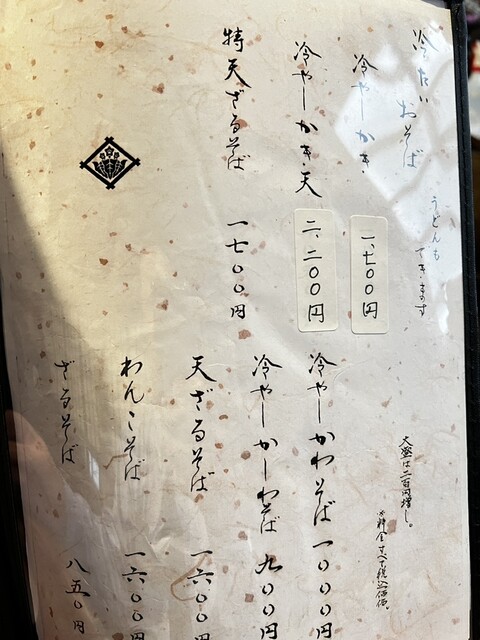 冷たいおそば
うどんもできます
冷やしかき
一、七〇〇円
冷やしかき天
二、二〇〇円
特天ざるそば
一七〇〇円
大盛は二百円増し。
※料金すべて税込価格。
冷やしかわそば 一〇〇〇円
冷やしかしわそば 九〇〇円
天ざるそば 一六〇〇円
わんこそば 一六〇〇円
ざるそば 八五〇円